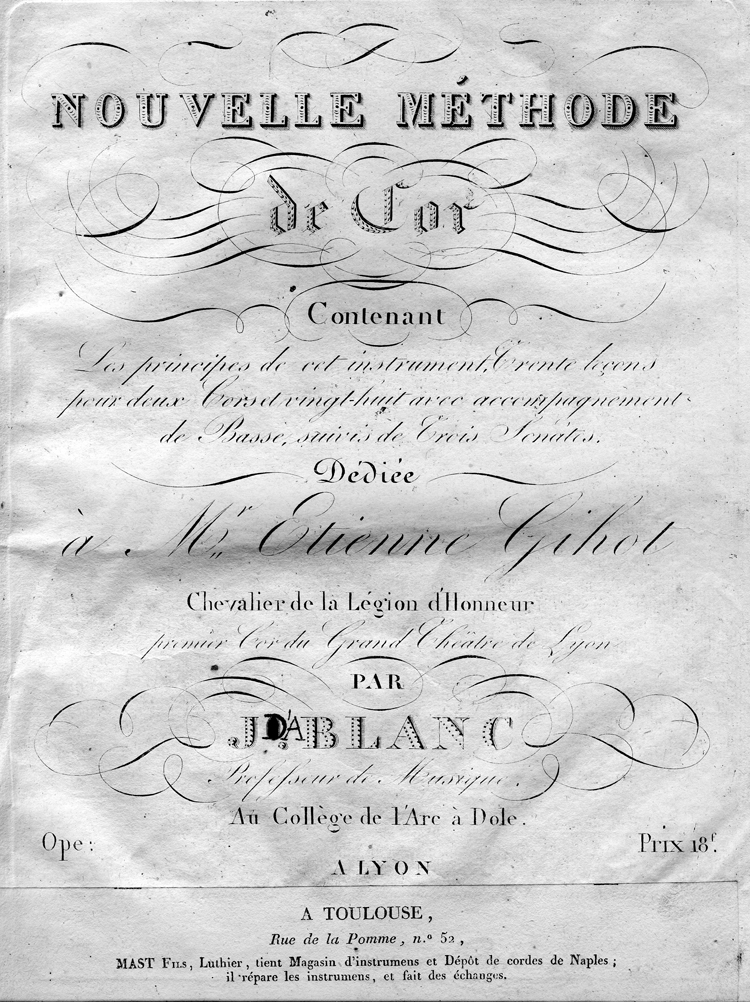 NOUVELLE MÉTHODE
de Cor
Contenant
Les principes de cet instrument, Trente leçons
pour deux Cors et vingt-huit avec accompagnement
de Basse, suivis de Trois Sonates.
Dédiée
à Mr. Etienne Gihot
Chevalier de la Légion d'Honneur
premier Cor du Grand Théâtre de Lyon
PAR
J. D'A BLANC
Professeur de Musique.
Au Collège de l'Arc à Dole.
Ope: Prix 18f.
A LYON
A TOULOUSE,
Rue de la Pomme, n.o 52,
MAST FILS, Luthier, tient Magasin d'instrumens et Dépôt de cordes de Naples;
il répare les instrumens, et fait des échanges.